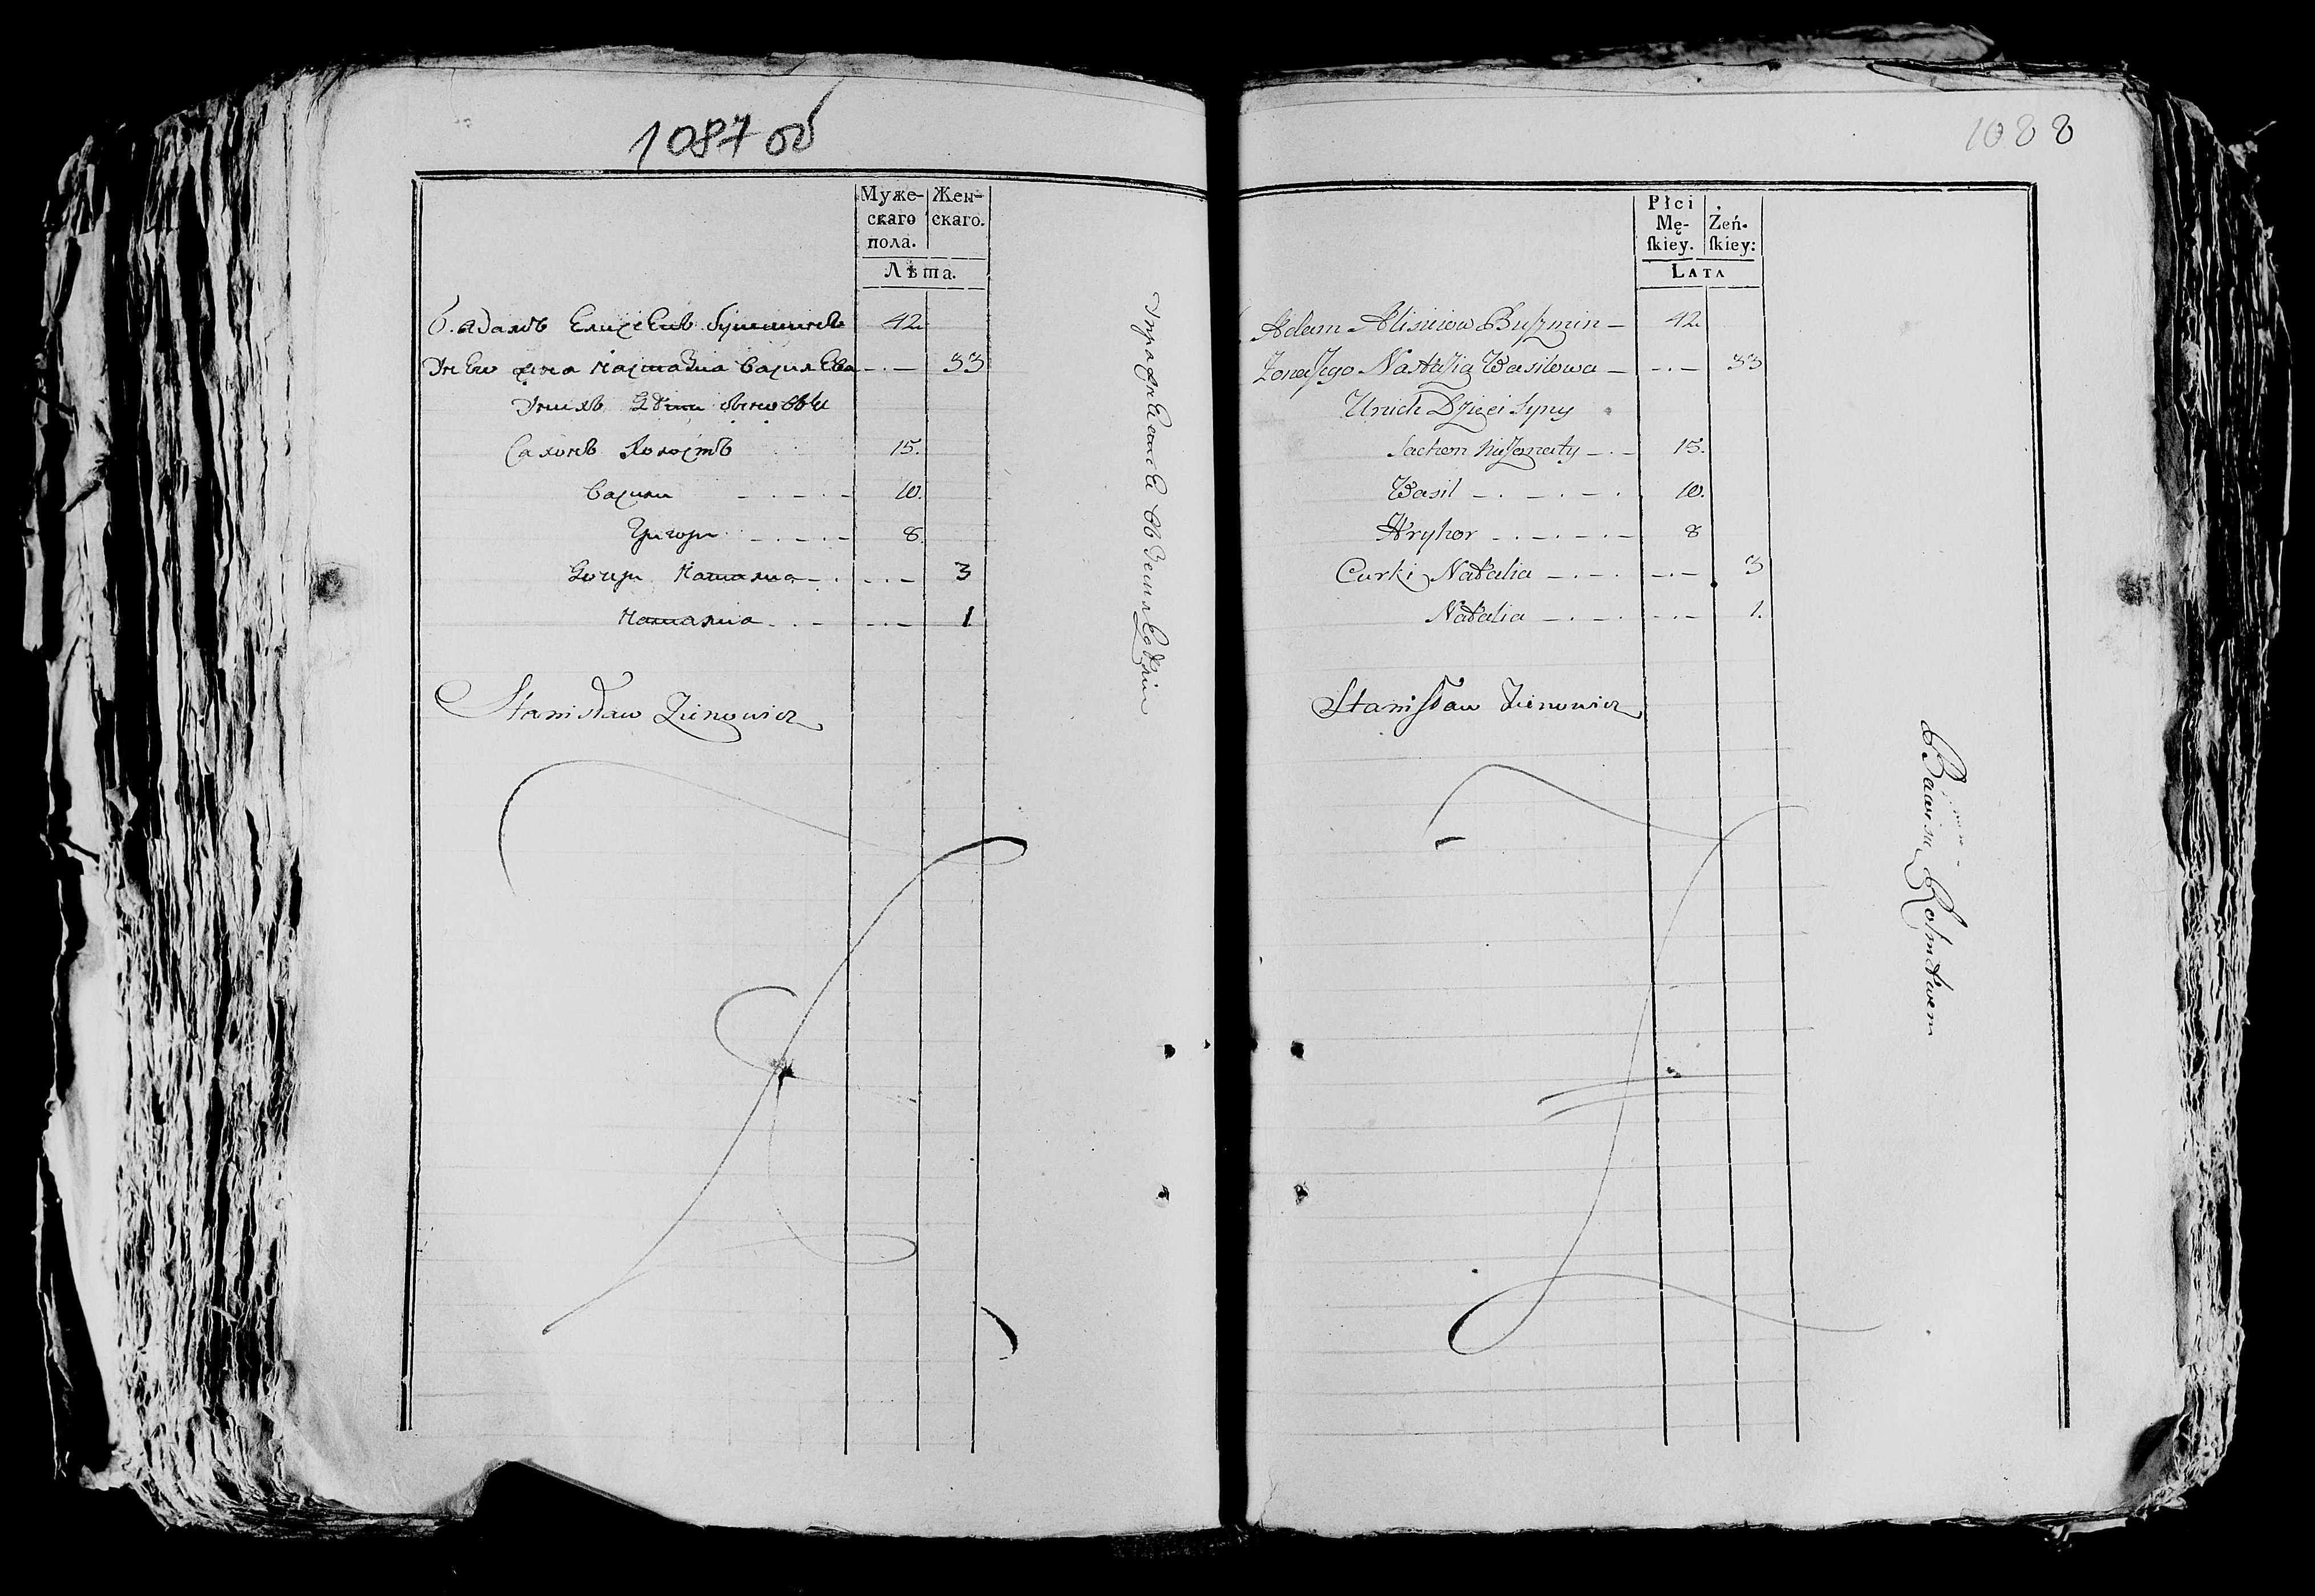 1087 об
Муже-
скаго
пола.
Жен-
скаго.
Лѣта.
6. Адамъ Елисеевъ Бушминъ 42.
Жена Настазиа Василева 33
Унихъ Дѣти сыновъя
Сахонъ Холостъ 15.
Васили 10.
Григори 8.
Дочери Наталиа 3
Наталиа 1
Stanisław Zienowicz
1088
Płci
Mę-
ſkiey.
Żeń-
ſkiey:
LATA
Adam Alisieiow Buszmin 42.
Zona Jego Nastazia Wasilowa 33
Unich Dzieci Syny
Sachon nieżonaty 15.
Wasil 10.
Hryhor 8
Curki Natalia 3
Natalia 1.
Stanisław Zienowicz
Bawi się Rolnictwem